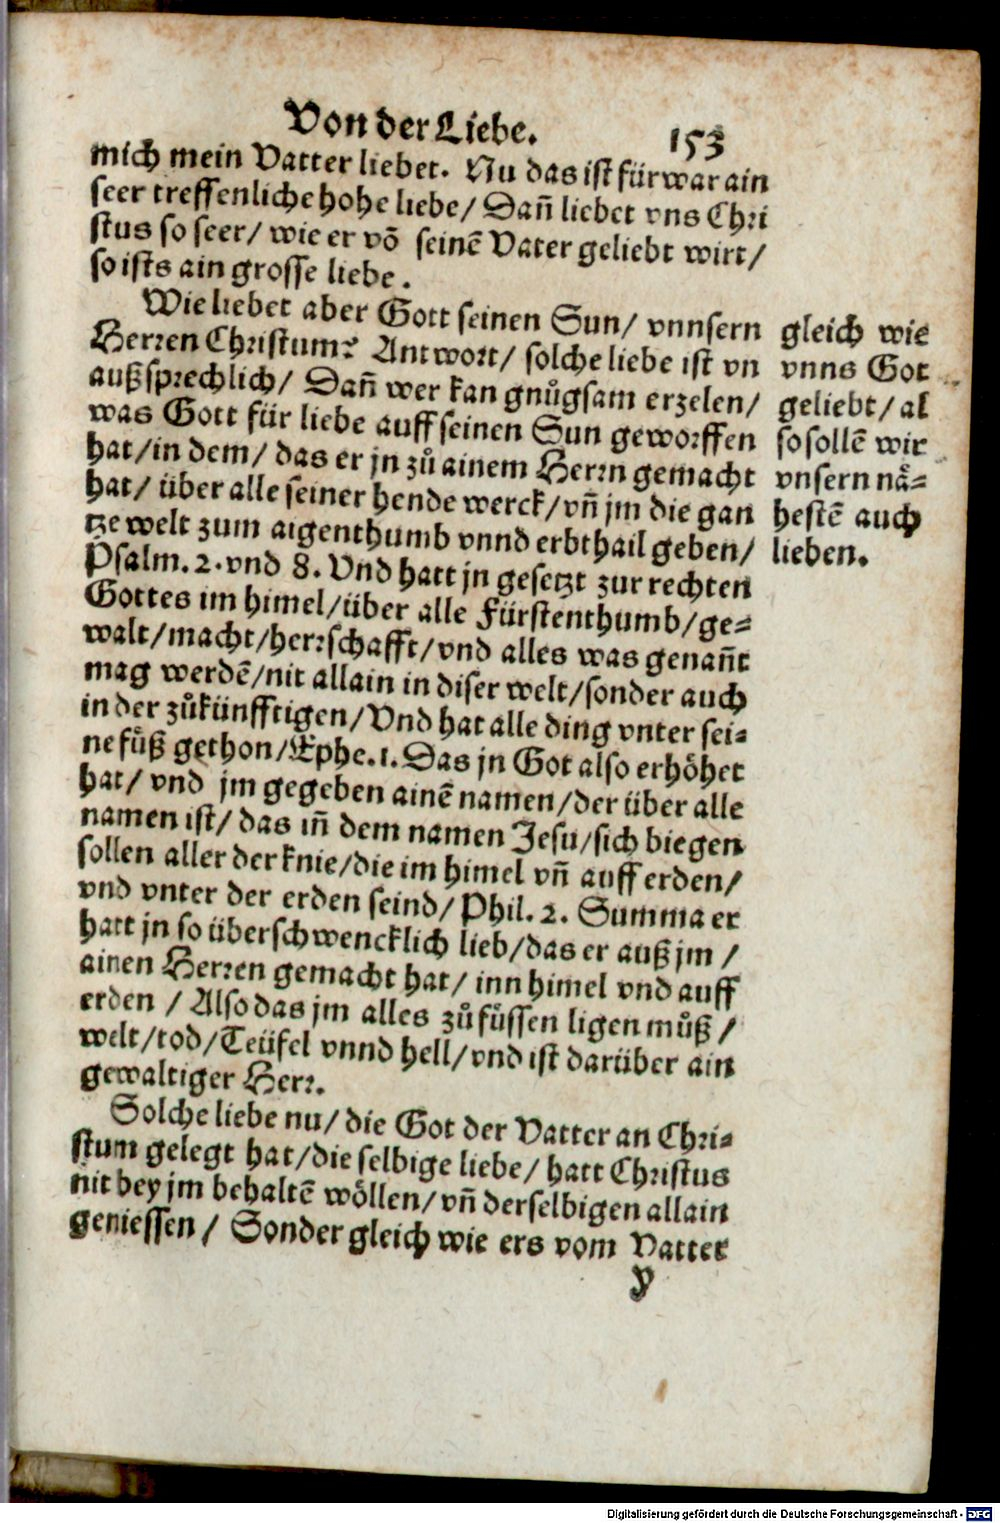 Von der Liebe. 153
mich mein Vatter liebet. Nu das ist fürwar ain
seer treffenliche hohe liebe/ Dañ liebet vns Chri
stus so seer/ wie er võ seinẽ Vater geliebt wirt/
so ists ain grosse liebe.
Wie liebet aber Gott seinen Sun/ vnnsern
Herren Christum? Antwort/ solche liebe ist vn
außsprechlich/ Dañ wer kan gnůgsam erzelen/
was Gott für liebe auff seinen Sun geworffen
hat/in dem/ das er jn zů ainem Herrn gemacht
hat/ über alle seiner hende werck/vñ jm die gan
tze welt zum aigenthumb vnnd erbthail geben/
Psalm. 2. vnd 8. Vnd hatt jn gesetzt zur rechten
Gottes im himel/über alle Fürstenthumb/ge-
walt/macht/herrschafft/vnd alles was genañt
mag werdẽ/nit allain in diser welt/sonder auch
in der zůkünfftigen/Vnd hat alle ding vnter sei-
ne fůß gethon/Ephe.1. Das jn Got also erhöhet
hat/ vnd jm gegeben ainẽ namen/der über alle
namen ist/ das iñ dem namen Jesu/sich biegen
sollen aller der knie/die im himel vñ auff erden/
vnd vnter der erden seind/ Phil. 2. Summa er
hatt jn so überschwencklich lieb/das er auß jm /
ainen Herren gemacht hat/ inn himel vnd auff
erden / Also das jm alles zůfůssen ligen můß /
welt/tod/Teüfel vnnd hell/vnd ist darüber ain
gewaltiger Herr.
Solche liebe nu/ die Got der Vatter an Chri-
stum gelegt hat/die selbige liebe/ hatt Christus
nit bey jm behaltẽ wöllen/vñ derselbigen allain
geniessen / Sonder gleich wie ers vom Vatter
V
gleich wie
vnns Got
geliebt/ al
so sollẽ wir
vnsern nä-
hestẽ auch
lieben.
Digitalisierung gefördert durch die Deutsche Forschungsgemeinschaft - DFG